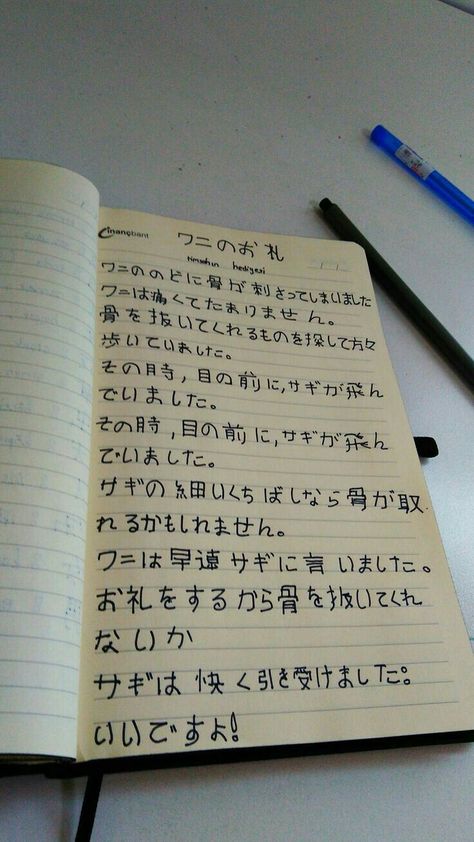 finansbank
ワニのお礼
timsahın hediyesi
ワニののどに骨が刺さってしまいました
ワニは痛くてたまりません。
骨を抜いてくれるものを探して方々
歩いていました。
その時,目の前に,サギが飛ん
でいました。
その時,目の前に,サギが飛ん
でいました。
サギの細いくちばしなら骨が取
れるかもしれません。
ワニは早遠サギに言いました。
お礼をするから骨を抜いてくれ
ないか
サギは快く引き受けました。
いいですよ!